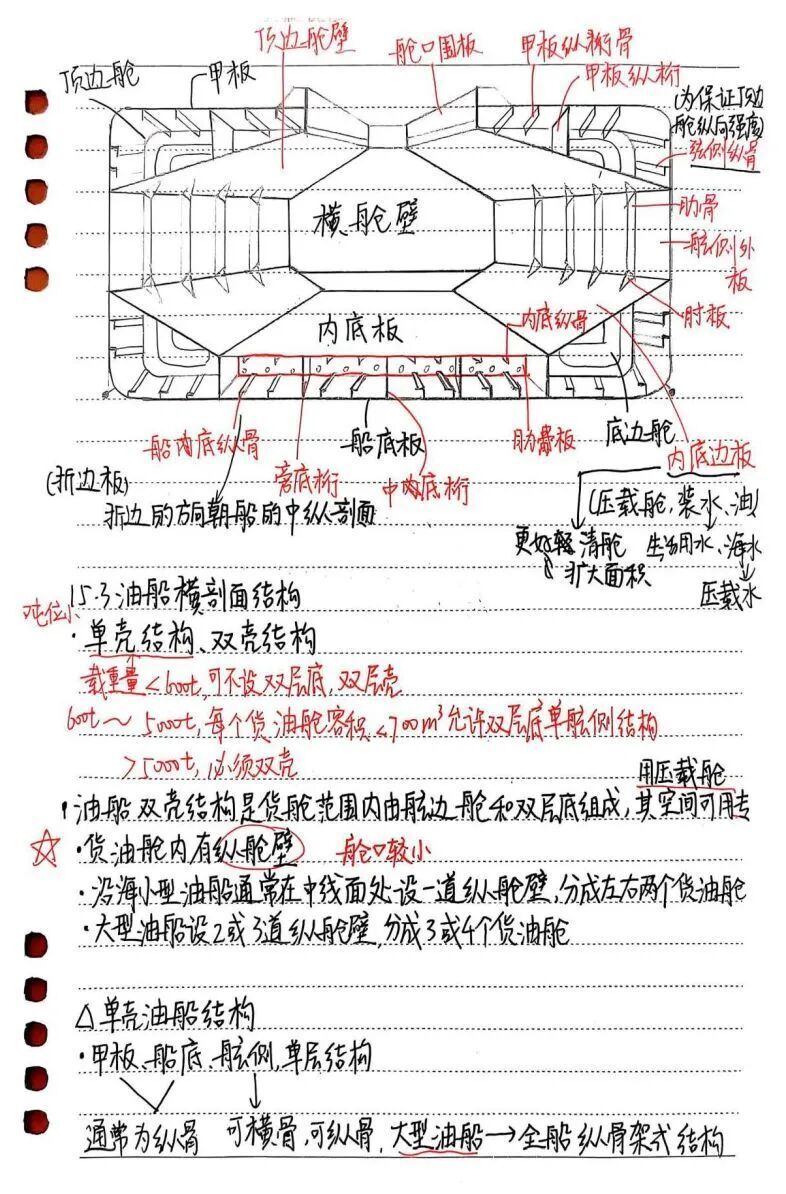 顶边舱壁
舱口围板
甲板纵桁骨
顶边舱
甲板
甲板纵桁
(为保证顶边
舱纵向强度)
舷侧纵骨
横舱壁
肋骨
舷侧外
板
内底板
内底纵骨
肘板
船内底纵骨
船底板
肋板
底边舱
内底边板
(折边板)
旁底桁
中内底桁
折边的方向朝船的中纵剖面
(压载舱,装水、油)
更好 清舱
生活用水、海水
扩大面积
压载水
15.3油船横剖面结构
吨位小
·单壳结构、双壳结构
载重量<600t,可不设双层底,双层壳
600t~5000t,每个货油舱容积≤700m³允许双层底单舷侧结构
>5000t,必须双壳
用压载舱
·油船双壳结构是货舱范围内由舷边舱和双层底组成,其空间可用专
☆·货油舱内有纵舱壁 舱口较小
·沿海小型油船通常在中线面处设一道纵舱壁,分成左右两个货油舱
·大型油船设2或3道纵舱壁,分成3或4个货油舱
△单壳油船结构
·甲板、船底、舷侧,单层结构
通常为纵骨 可横骨,可纵骨,大型油船→全船纵骨架式结构